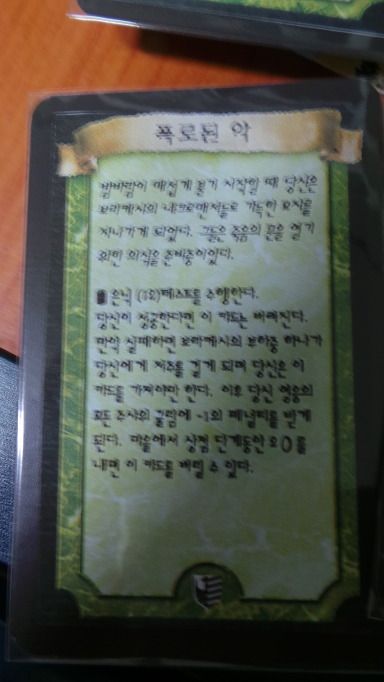 폭로된 악
밤바람이 매섭게 불기 시작할 때 당신은
보라케시의 네크로맨서들로 가득한 묘지를
지나가게 되었다. 그들은 죽음의 문을 열기
위한 의식을 준비중이었다.
은닉 (12)테스트를 수행한다.
당신이 성공한다면 이 카드는 버려진다.
만약 실패하면 보라케시의 부하중 하나가
당신에게 저주를 걸게 되며 당신은 이
카드를 가져야만 한다. 이후 당신 영웅의
모든 주사위 굴림에 -1의 페널티를 받게
된다. 마을에서 상점 단계동안 80를
내면 이 카드를 버릴 수 있다.